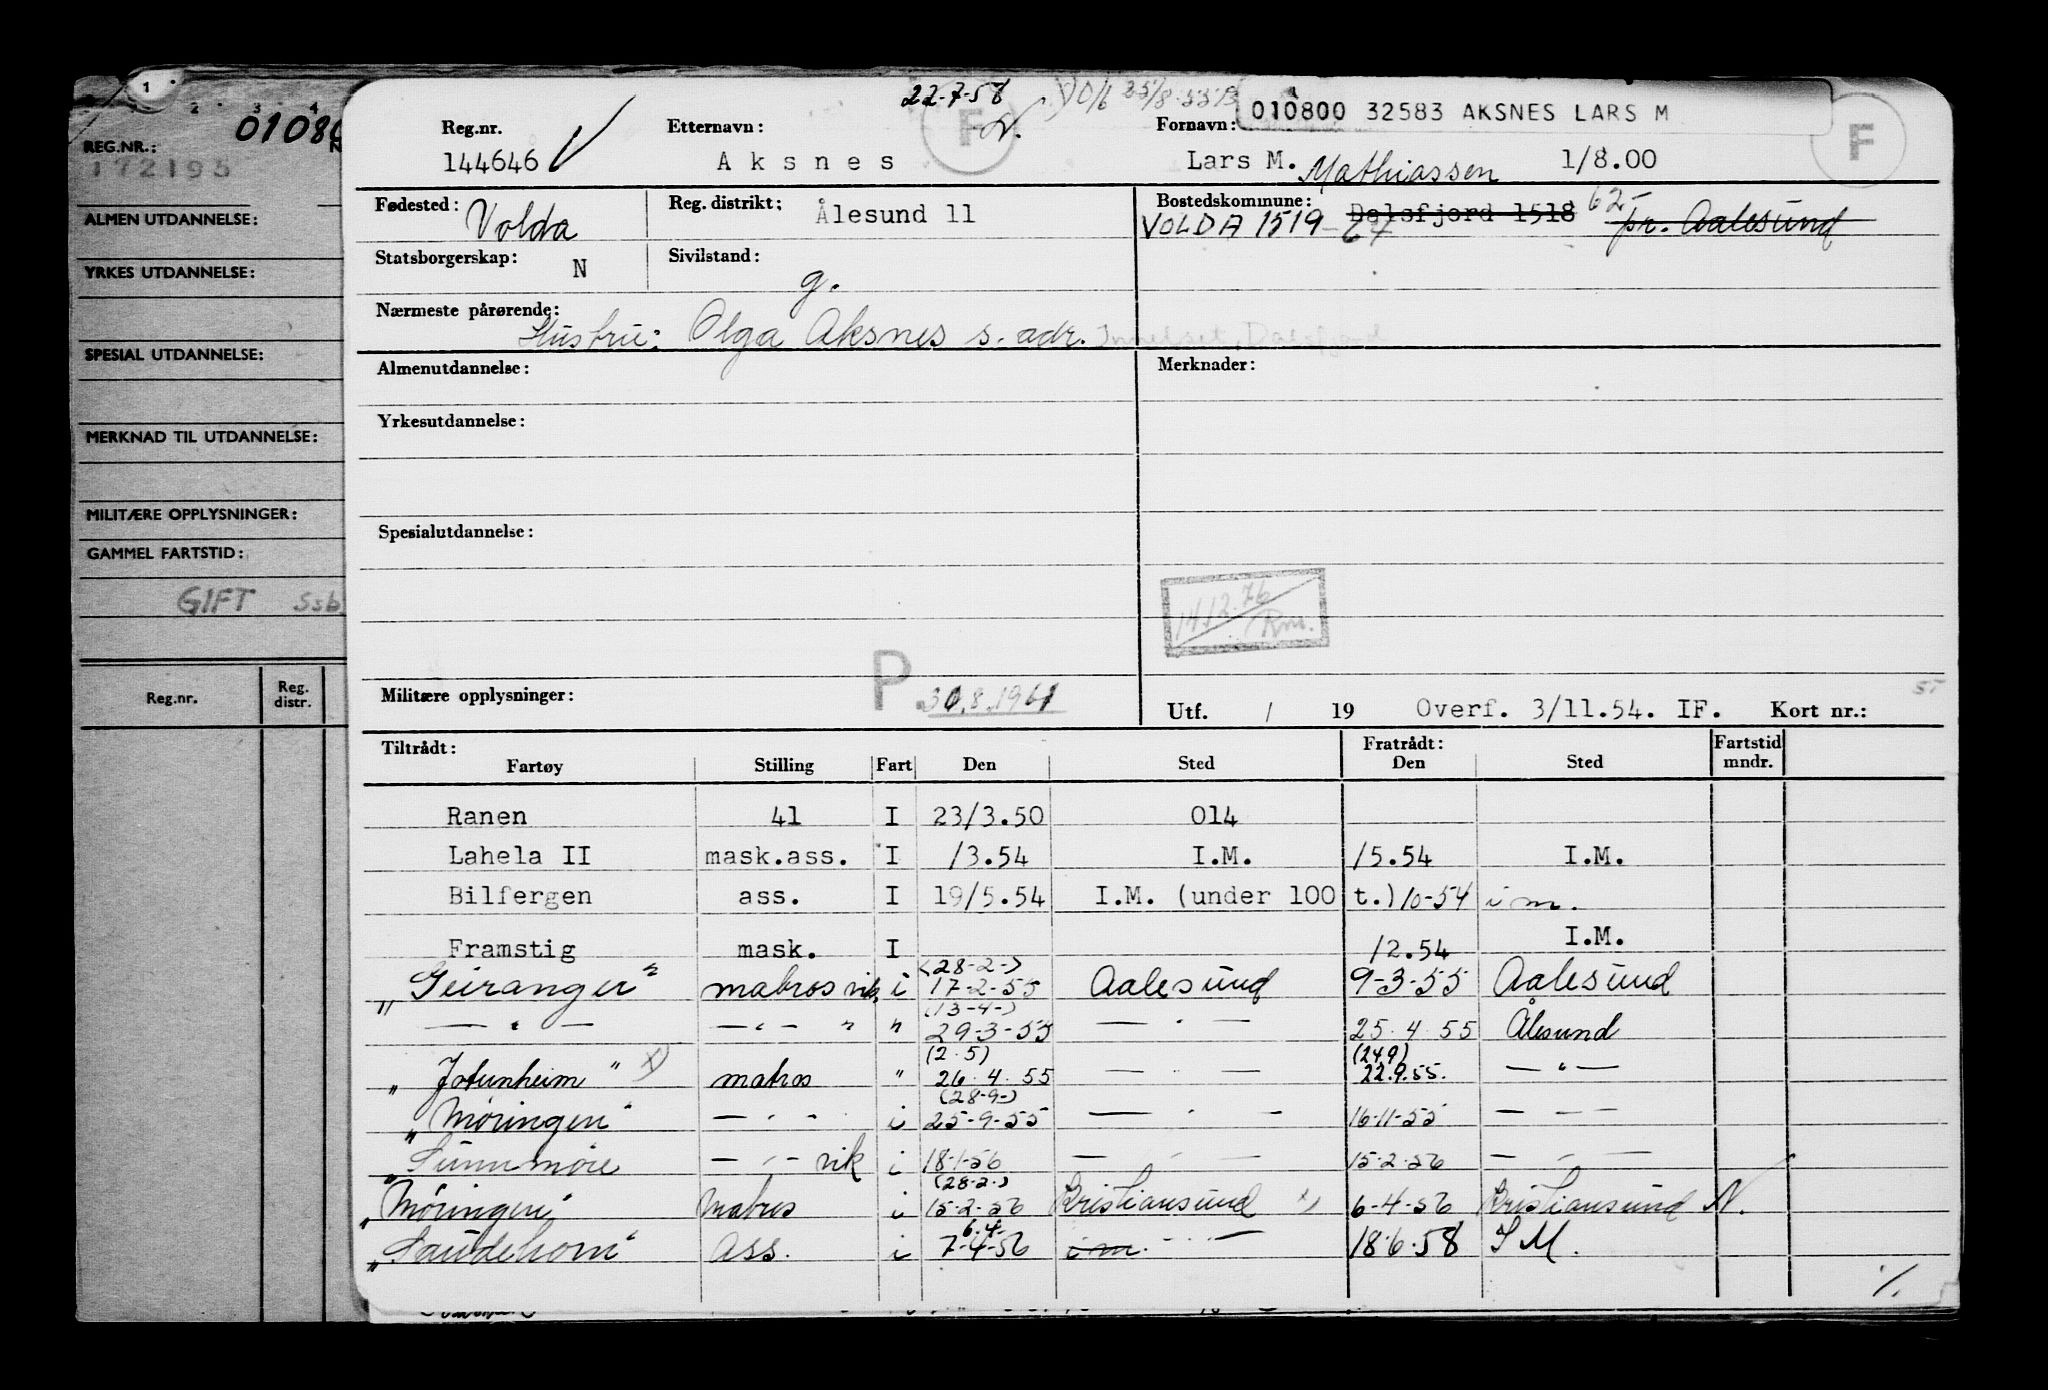 1 2 3 4
REG.NR.: 01080
172195
ALMEN UTDANNELSE:
YRKES UTDANNELSE:
SPESIAL UTDANNELSE:
MERKNAD TIL UTDANNELSE:
MILITÆRE OPPLYSNINGER:
GAMMEL FARTSTID:
GIFT Ssb
Reg.nr. Reg. distr.
22-7-58
N.
F
010800 32583 AKSNES LARS M
F
Reg.nr. Etternavn: Fornavn:
144646 Aksnes Lars M. Mathiassen 1/8.00
Fødested: Volda Reg. distrikt: Ålesund 11 Bostedskommune: Dalsfjord 1518 62- pr. Aalesund
VOLDA 1519 - 67
Statsborgerskap: N Sivilstand: g.
Nærmeste pårørende:
Hustru: Olga Aksnes s. adr.
Almenutdannelse: Merknader:
Yrkesutdannelse:
Spesialutdannelse:
14/12.76 Rm.
Militære opplysninger: P 30.8.1961
Utf. / 19 Overf. 3/11.54. IF. Kort nr.:
Tiltrådt: Fratrådt: Fartstid
Fartøy Stilling Fart Den Sted Den Sted mndr.
Ranen 41 I 23/3.50 014
Lahela II mask.ass. I /3.54 I.M. /5.54 I.M.
Bilfergen ass. I 19/5.54 I.M. (under 100 t.) 10-54 i m.
Framstig mask. I /2.54 I.M.
(28-2-)
„Geiranger" matros vik. i 17-2-55 Aalesund 9-3-55 Aalesund
(13-4-)
— " — — " — " " 29-3-55 — " — 25.4 55 Ålesund
(2.5) (24.9)
„Jotunheim" x) matros " 26.4.55 — " — 22.9.55. — " —
(28-9-)
„Møringen" — " — i 25-9-55 — " — 16-11-55 — " —
„Sunnmøre — " — vik i 18-1-56 — " — 15-2-56 — " —
(28-2-)
„Møringen" Matros i 15-2-56 Kristiansund x) 6-4-56 Kristiansund N.
6.4-
„Saudehorn" Ass. i 7-4-56 i m. — " — 18.6.58 I M.
%